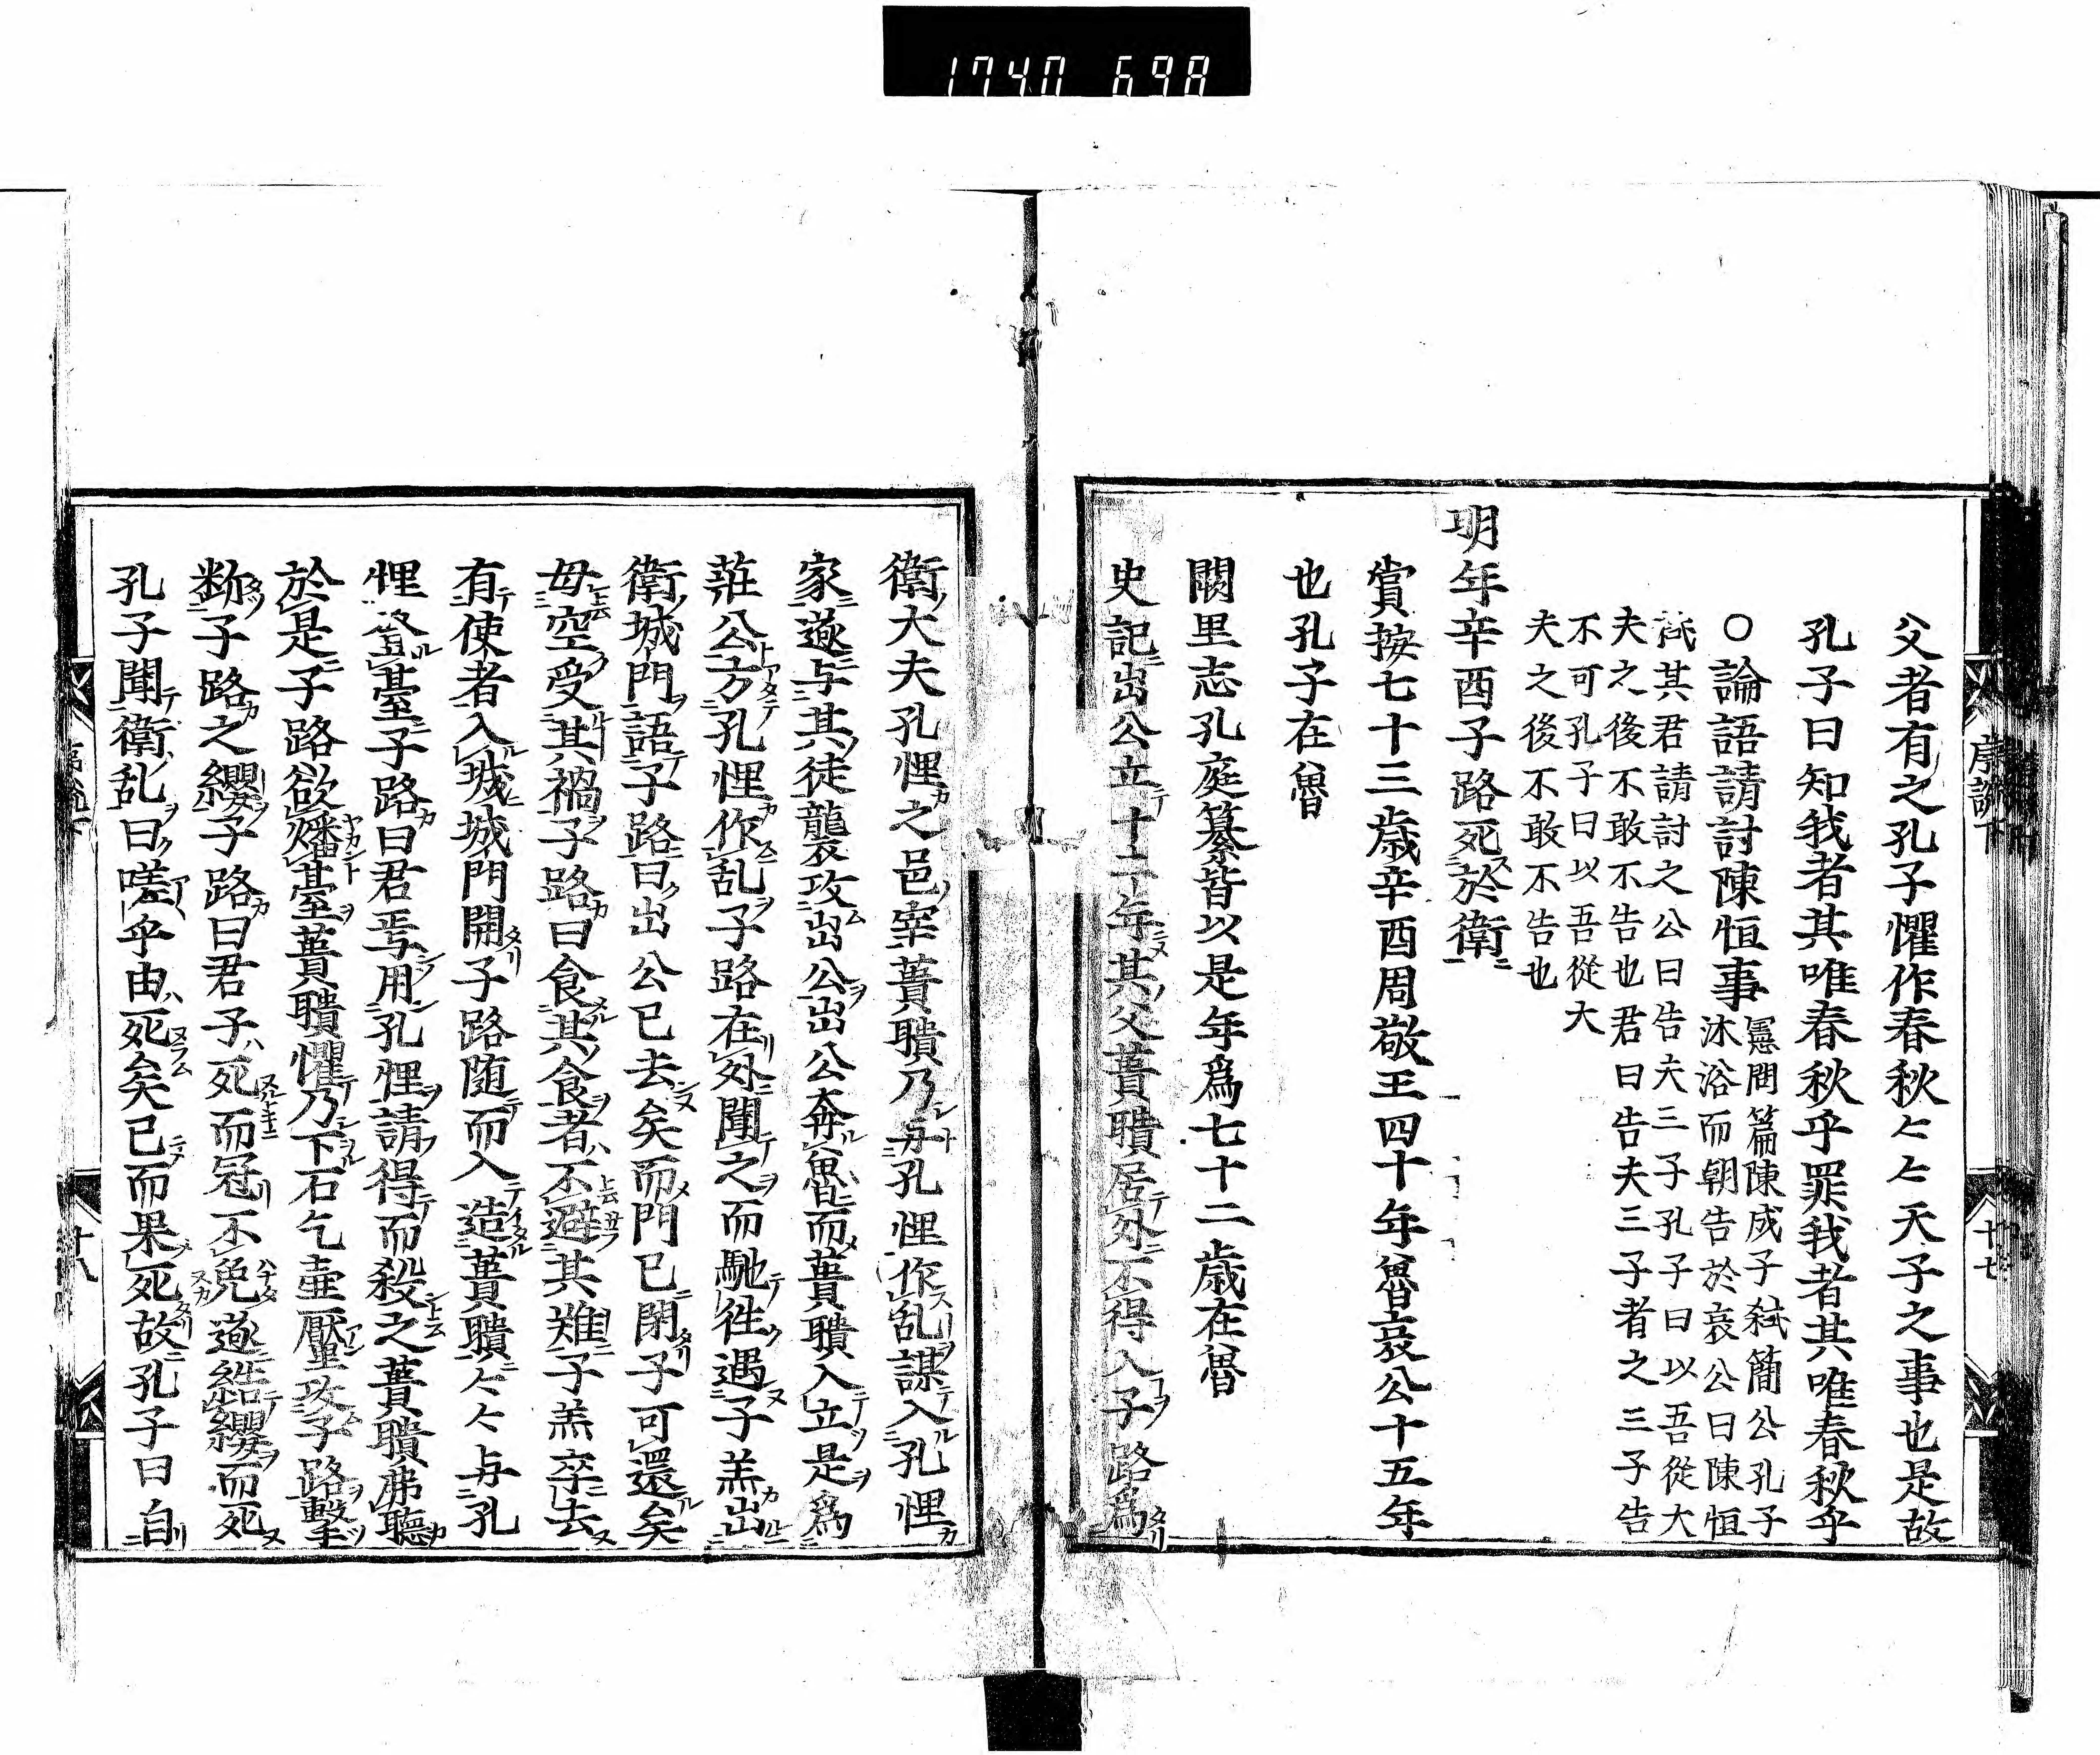 1740 698
父者有之孔子懼作春秋〻〻天子之事也是故
孔子曰知我者其唯春秋乎罪我者其唯春秋乎
○論語請討陳恒事憲問篇陳成子弑簡公孔子
沐浴而朝告於哀公曰陳恒
弑其君請討之公曰告夫三子孔子曰以吾從大
夫之後不敢不告也君曰告夫三子者之三子告
不可孔子曰以吾從大
夫之後不敢不告也
明年辛酉子路死於衛
賞按七十三歲辛酉周敬王四十年魯哀公十五年
也孔子在魯
闕里志孔庭纂皆以是年爲七十二歲在魯
史記出公立十二年其父蕢聵居外不得入子路爲
衛大夫孔悝之邑宰蕢聵乃与孔悝作乱謀入孔悝
家遂与其徒襲攻出公出公奔魯而蕢聵入立是爲
莊公方孔悝作乱子路在外聞之而馳往遇子羔出
衛城門語子路曰出公已去矣而門已閉子可還矣
毋空受其禍子路曰食其食者不避其難子羔卒去
有使者入城城門開子路随而入造蕢聵〻〻与孔
悝登臺子路曰君焉用孔悝請得而殺之蕢聵弗聽
於是子路欲燔臺蕢聵懼乃下石乞壷黶攻子路擊
断子路之纓子路曰君子死而冠不免遂結纓而死
孔子聞衛乱曰嗟乎由死矣已而果死故孔子曰自